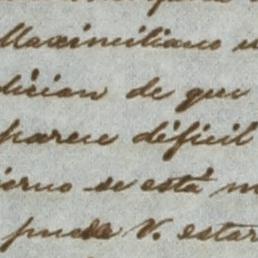 Maximiliano
dicion de que
parece dificil
ierno se está
puede V. estar